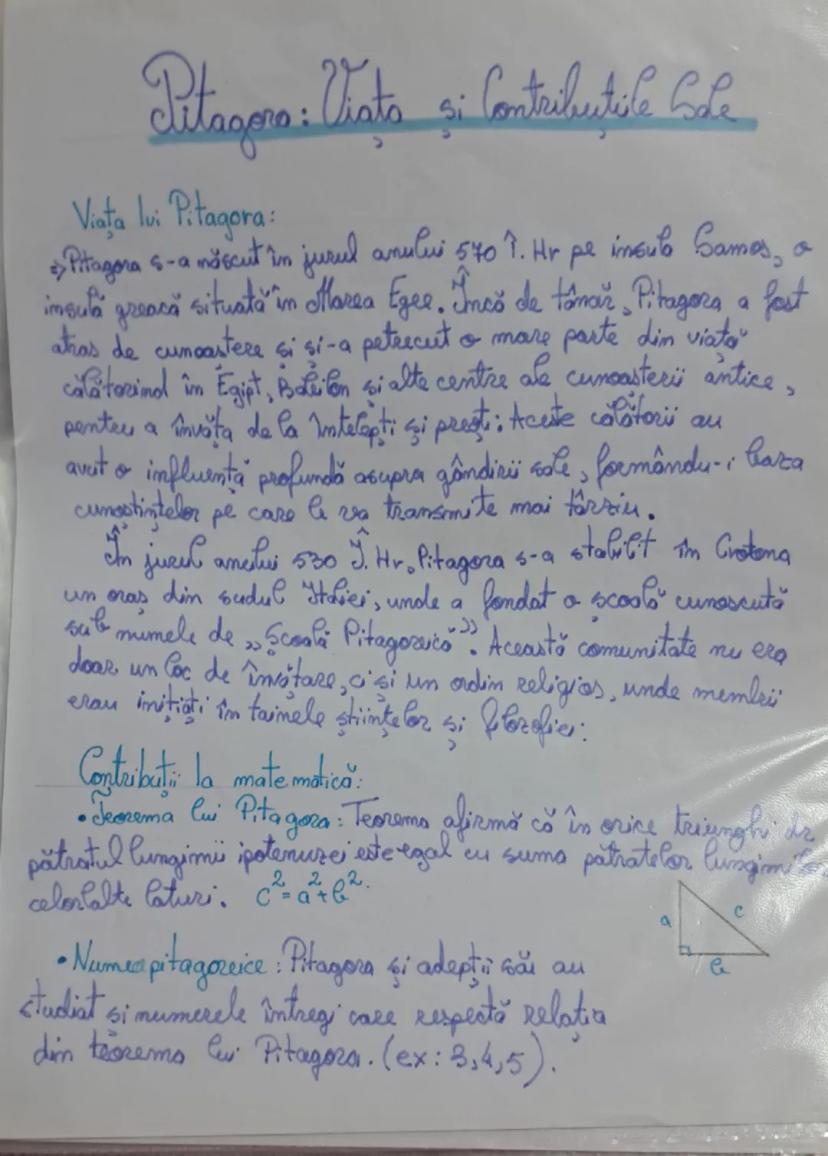 Pitagora: Viața și Contribuțiile Sale
Viața lui Pitagora:
⇒ Pitagora s-a născut în jurul anului 570 Î. Hr pe insula Samos, o
insulă greacă situată în Marea Egee. Încă de tânăr, Pitagora a fost
atras de cunoaștere și și-a petrecut o mare parte din viață
călătorind în Egipt, Babilon și alte centre ale cunoașterii antice,
pentru a învăța de la înțelepți și preoți: Aceste călătorii au
avut o influență profundă asupra gândirii sale, formându-i baza
cunoștințelor pe care le va transmite mai târziu.
În jurul anului 530 Î. Hr, Pitagora s-a stabilit în Crotona
un oraș din sudul Italiei, unde a fondat o școală cunoscută
sub numele de „Școală Pitagoreică”. Această comunitate nu era
doar un loc de învățare, ci și un ordin religios, unde membrii
erau inițiați în tainele științelor și filozofiei:
Contribuții la matematică:
• Teorema lui Pitagora: Teorema afirmă că în orice triunghi dr
pătratul lungimii ipotenuzei este egal cu suma pătratelor
celorlalte laturi. c² = a² + b².
a c
b
• Numere pitagoreice: Pitagora și adepții săi au
studiat și numerele întregi care respectă relația
din teorema lui Pitagora. (ex: 3,4,5).